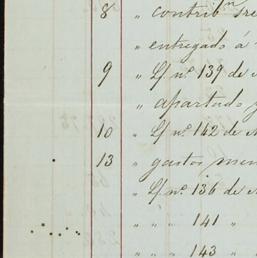 8 " contrib.n
" entregado á
9 " L/ nº 139 de
" apartado
10 " L/ nº 142 de
13 " gastos men
" L/ nº 136 de
" " " 141 "
" " " 143 "